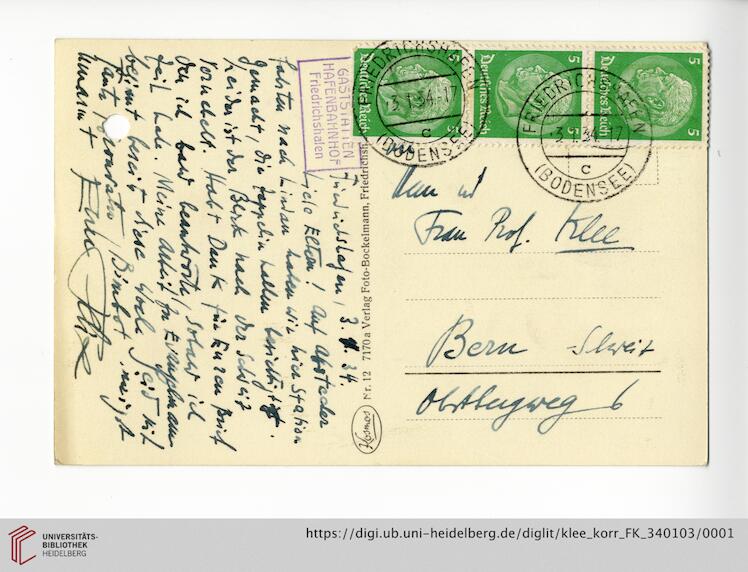 Friedrichshafen, 3.1.34
Liebe Eltern! Auf Abstecher
fahrten nach Lindau haben wir hier Station
gemacht, die Zeppelin hallen besichtigt.
Leider ist der Berk nach der Schweiz
Habt Dank für Euren Brief
den ich bald beantworte, sobald ich
Zeit habe. Meine Arbeit
diese Woche. Seid mit
Bimbo
umarmt Felix
GASTSTÄTTEN
HAFENBAHNHOF
Friedrichshafen
Nr. 12 7170a Verlag Foto-Bockelmann, Friedrichsh
Kosmos
Deutsches Reich 5
Deutsches Reich 5
Deutsches Reich 5
FRIEDRICHSHAFEN
3.1.34.-17
c
(BODENSEE)
FRIEDRICHSHAFEN
3.1.34.-17
c
(BODENSEE)
Herrn und
Frau Prof. Klee
Bern Schweiz
Obstbergweg 6
UNIVERSITÄTS-
BIBLIOTHEK
HEIDELBERG
https://digi.ub.uni-heidelberg.de/diglit/klee_korr_FK_340103/0001